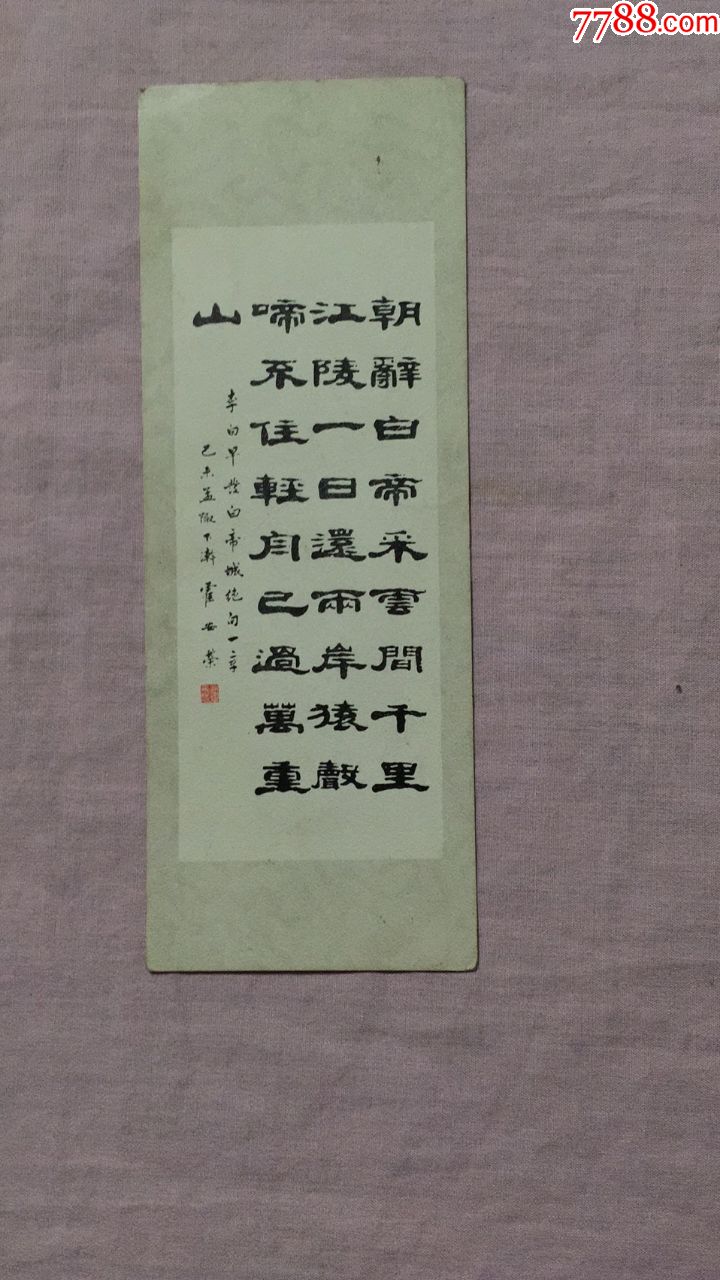 7788.com
朝辭白帝采雲間千里
江陵一日還兩岸猿聲
啼不住輕舟已過萬重
山
李白早發白帝城絕句一章
己未孟陬下澣 霍安榮